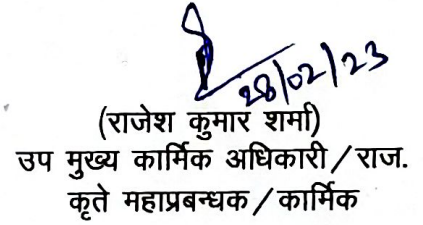 28/02/23
(राजेश कुमार शर्मा)
उप मुख्य कार्मिक अधिकारी/राज.
कृते महाप्रबन्धक/कार्मिक